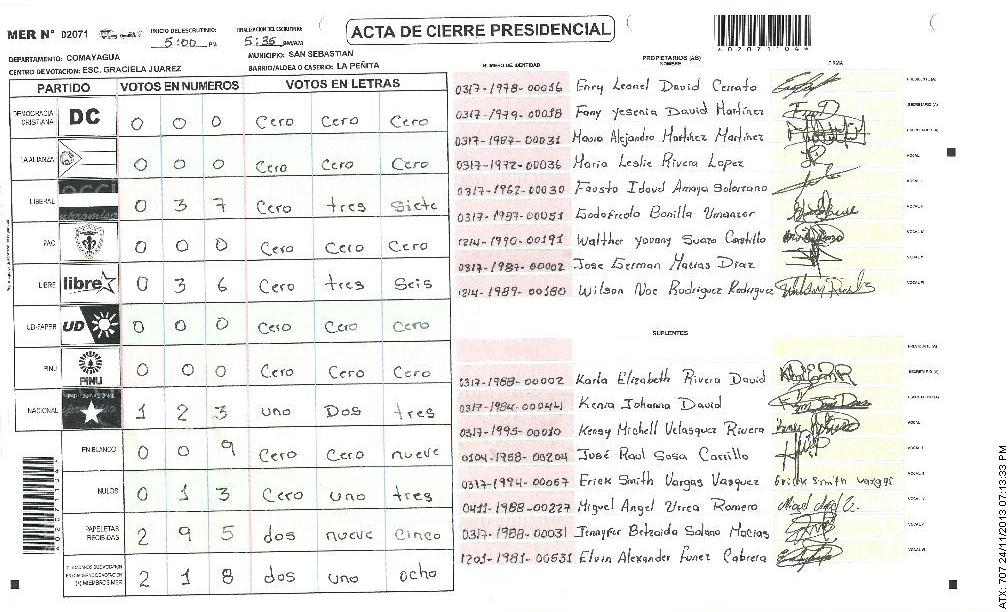 MER N° 02071
INICIO DEL ESCRUTINIO:
5:00 PM
FINALIZACION DEL ESCRUTINIO:
5:35 PM/AM
ACTA DE CIERRE PRESIDENCIAL
DEPARTAMENTO: COMAYAGUA
MUNICIPIO: SAN SEBASTIAN
CENTRO DE VOTACION: ESC. GRACIELA JUAREZ
BARRIO/ALDEA O CASERIO: LA PEÑITA
PARTIDO VOTOS EN NUMEROS VOTOS EN LETRAS
DEMOCRACIA CRISTIANA DC 0 0 0 Cero Cero Cero
LA ALIANZA 0 0 0 Cero Cero Cero
LIBERAL 0 3 7 Cero tres Siete
PAC 0 0 0 Cero Cero Cero
LIBRE libre 0 3 6 Cero tres Seis
UD-FAPER UD 0 0 0 Cero Cero Cero
PINU PINU 0 0 0 Cero Cero Cero
NACIONAL 1 2 3 uno Dos tres
EN BLANCO 0 0 9 Cero Cero nueve
NULOS 0 1 3 Cero uno tres
PAPELETAS RECIBIDAS 2 9 5 dos nueve Cinco
2 1 8 dos uno ocho
NUMERO DE IDENTIDAD
PROPIETARIOS (AS)
NOMBRE
FIRMA
0317-1978-00036 Enry Leonel David Cerrato
0317-1979-00038 Fany yesenia David Martinez
0317-1987-00031 Mauro Alejandro Martinez Martinez
0317-1972-00036 Maria Leslie Rivera Lopez
0317-1962-00030 Fausto Idavd Amaya Solorzano
0317-1987-00051 Godofredo Bonilla Umanzor
1214-1990-00191 Walther yovany Suazo Castillo
0317-1987-00002 Jose German Macias Diaz
1214-1989-00180 Wilson Noe Rodriguez Rodriguez
SUPLENTES
0317-1988-00002 Karla Elizabeth Rivera David
0317-1984-00044 Kenia Johanna David
0317-1995-00010 Kensy Michell Velasquez Rivera
0104-1958-00204 José Raul Sosa Carrillo
0317-1994-00067 Erick Smith Vargas Vasquez Erick Smith Vargas
0411-1988-00227 Miguel Angel Urrea Romero
0317-1988-00031 Jennyfer Betzaida Solano Macias
1201-1981-00531 Elvin Alexander Funez Cabrera
ATX: 707 24/11/2013 07:13:33 PM